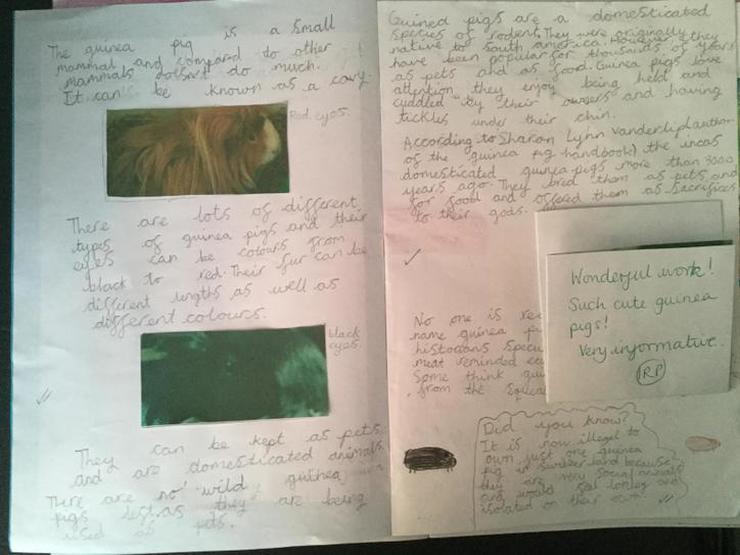 The guinea pig is a small
mammal and compared to other
mammals doesn't do much.
It can be known as a cavy.
Red eyes.
There are lots of different
types of guinea pigs and their
eyes can be colours from
black to red. Their fur can be
different lengths as well as
different colours.
black
eyes.
They can be kept as pets
and are domesticated animals
There are no wild guinea
pigs left as they are being
used as pets.
Guinea pigs are a domesticated
species of rodent. They were originally
native to South america, they
have been popular for thousands of years
as pets and as food. Guinea pigs love
attention they enjoy being held and
cuddled by their owners and having
tickles under their chin.
According to Sharon Lynn Vanderlip (author
of the guinea pig handbook) the incas
domesticated guinea pigs more than 3000
years ago. They bred them as pets and
for food and offered them as sacrifices
to their gods.
Wonderful work!
Such cute guinea
pigs!
Very informative.
RP
No one is
name guinea
historians
meat reminded
Some think
from the
Did you know?
It is now illegal to
own just one guinea
pig in because
they are very social animals
and would lonley and
isolated on their own.